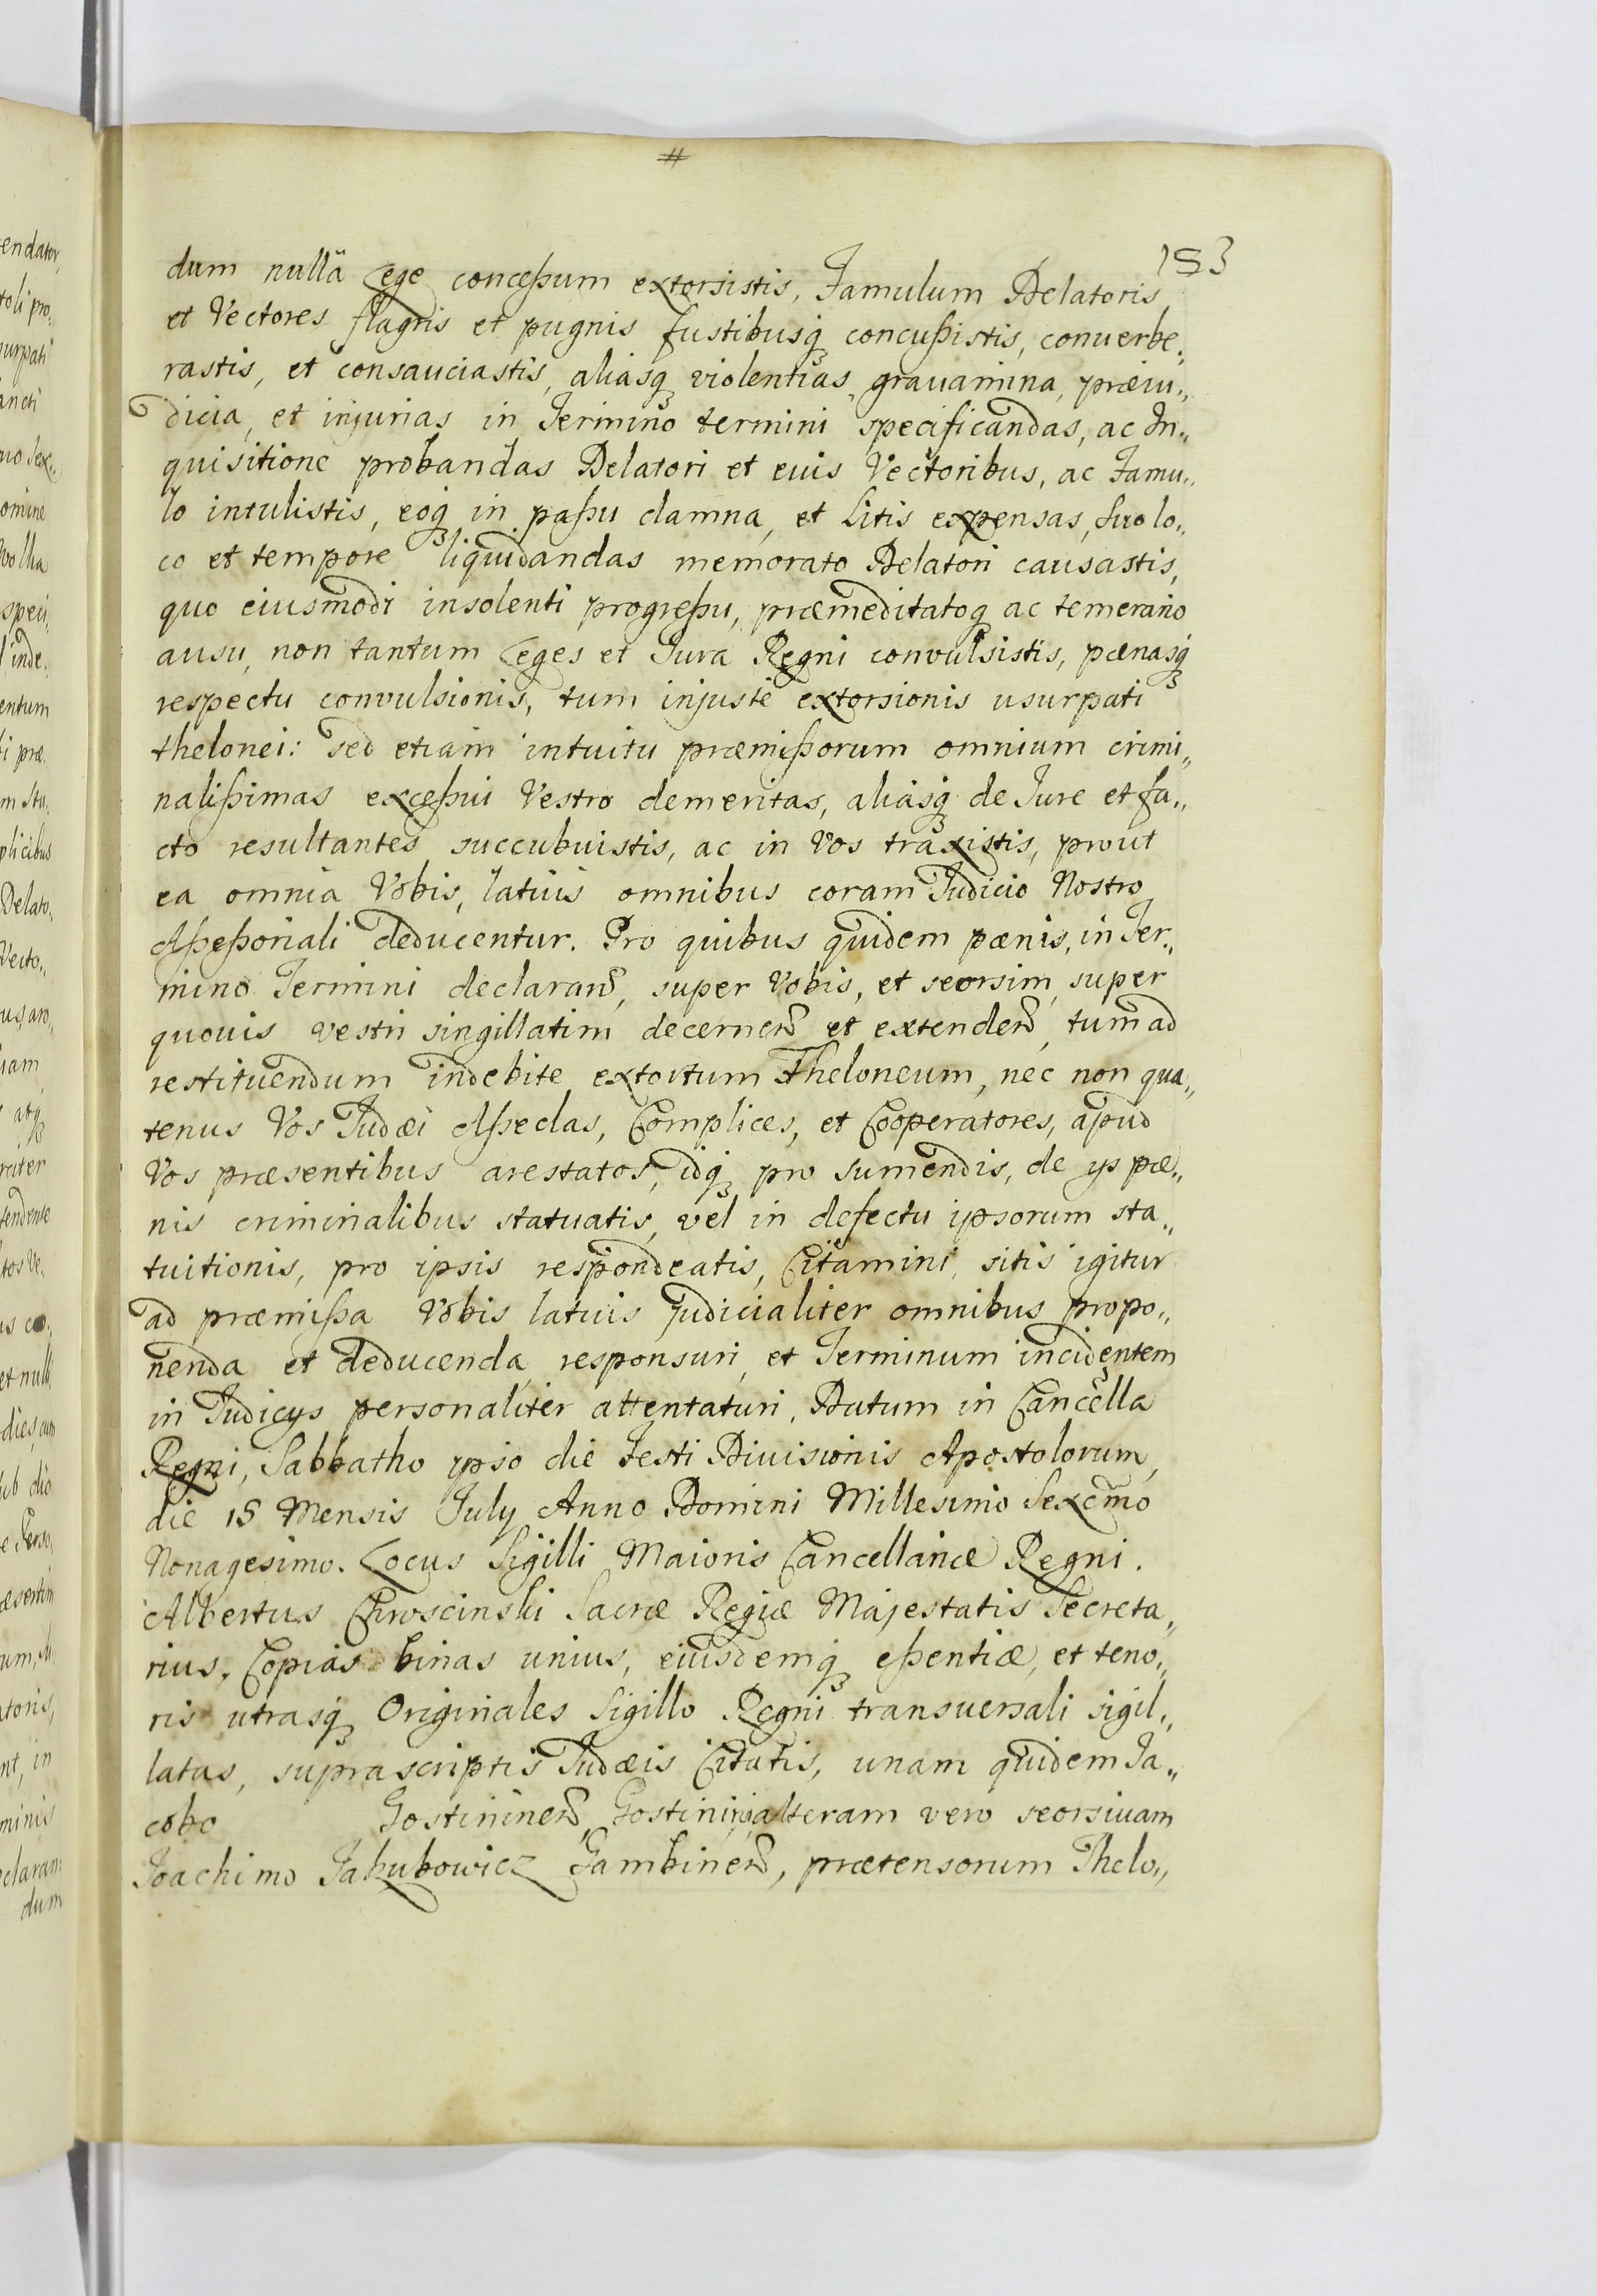 #
153
dum nullâ Lege conceßum extorsistis, Famulum Delatoris
et Vectores flagris et pugnis fustibusq concußistis, conuerbe„
rastis, et consauciastis, aliasq violentias, grauamina, præiu„
dicia, et injurias in Termino termini specificandas, ac In„
quisitione probandas Delatori et euis Vectoribus, ac Famu„
lo intulistis, eoq in paßu damna, et Litis expensas, suo lo„
co et tempore liquidandas memorato Delatori causastis,
quo eiusmodi insolenti progreßu, præmeditatoq ac temerario
ausu, non tantum Leges et Jura Regni convulsistis, pænasq
respectu convulsionis, tum injustè extorsionis usurpati
thelonei: sed etiam intuitu præmißorum omnium crimi„
nalißimas exceßui Vestro demeritas, aliasq de Jure et fa„
cto resultantes succubuistis, ac in Vos traxistis, prout
ea omnia Vobis, latius omnibus coram Judicio Nostro
Aßeßoriali deducentur. Pro quibus quidem pænis, in Ter„
mino Termini declaran̄, super Vobis, et seorsim super
quouis vestri singillatim decernen̄ et extenden̄, tum ad
restituendum indebite extortum Theloneum, nec non qua„
tenus Vos Judæi Aßeclas, Complices, et Cooperatores, apud
Vos præsentibus arestatos, idq pro sumendis, de ys pæ„
nis criminalibus statuatis, vel in defectu ipsorum sta„
tuitionis, pro ipsis respondeatis, Citamini, sitis igitur
ad præmißa Vobis latius judicialiter omnibus propo„
nenda et deducenda responsuri, et Terminum incidentem
in Judicys personaliter attentaturi, Datum in Cancella
Regni, Sabbatho ipso die Festi Diuisionis Apostolorum,
die 15 Mensis July Anno Domini Millesimo Sexcmo
Nonagesimo. Locus Sigilli Maioris Cancellariæ Regni.
Albertus Chroscinski Sacræ Regiæ Majestatis Secreta„
rius. Copias binas unius, eiusdemq eßentiæ, et teno„
ris utrasq Originales Sigillo Regni transuersali sigil„
latas, suprascriptis Judæis Citatis, unam quidem Ja„
cobo Gostininen̄, alteram vero seorsiuam
Joachimo Jakubowicz Gambinen̄, prætensorum Thelo„